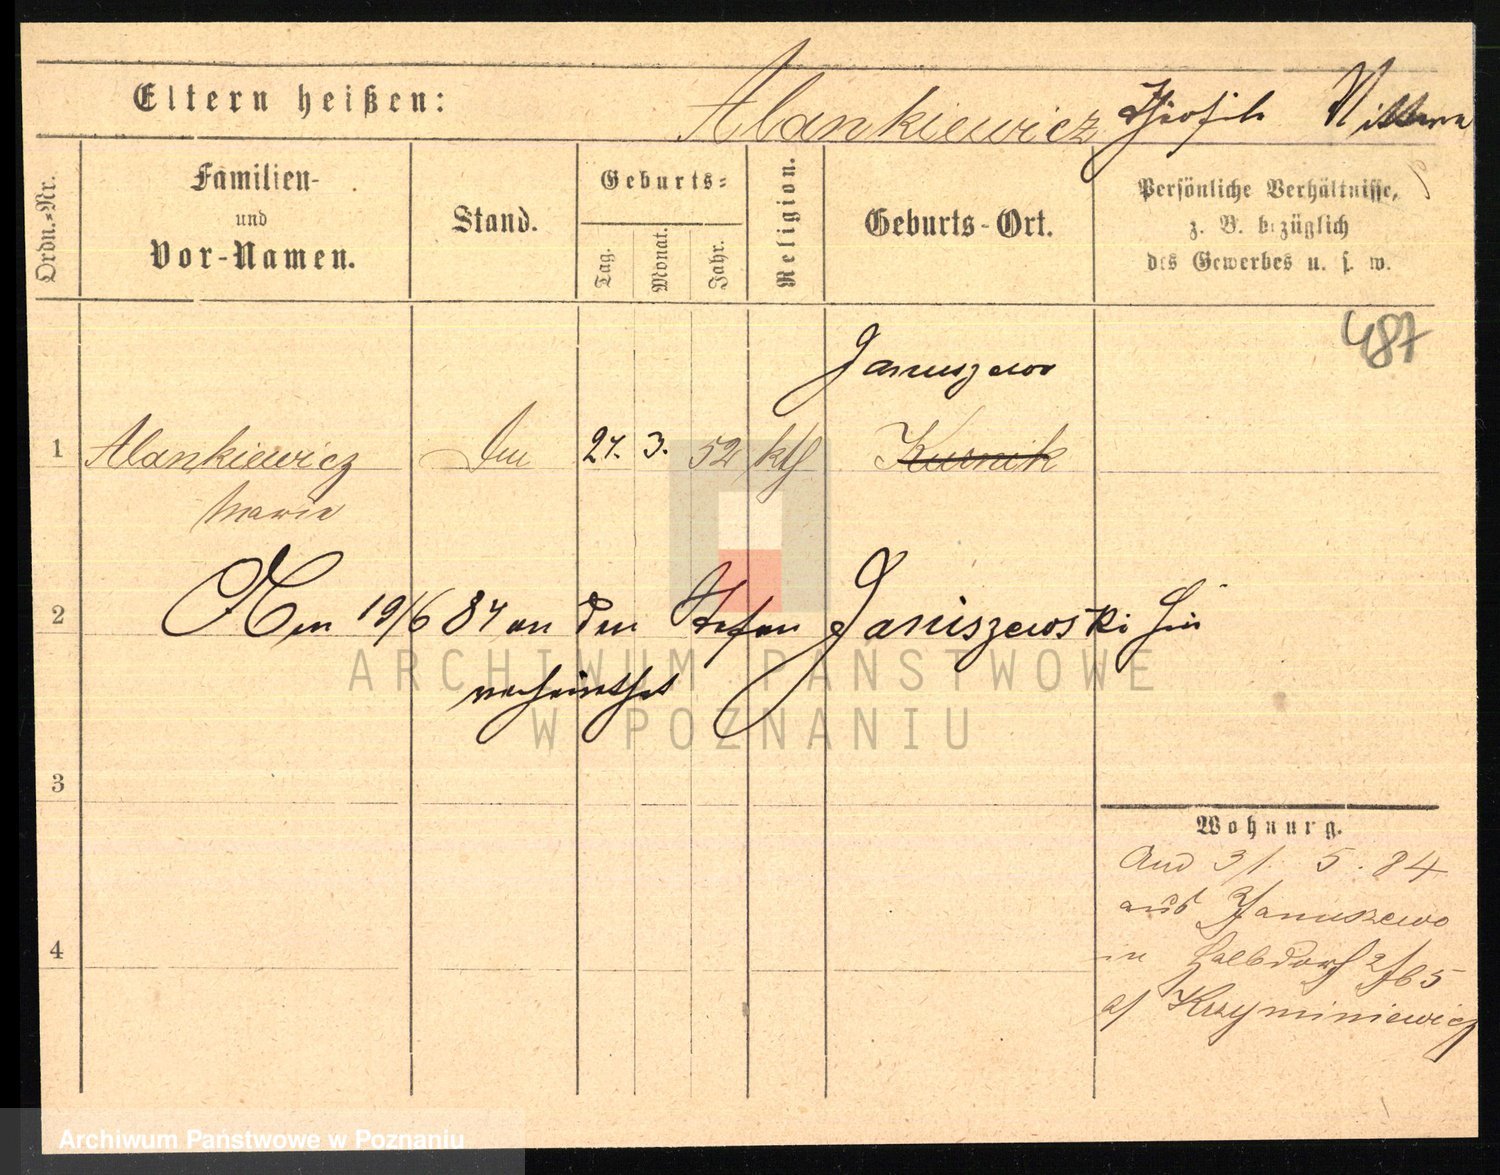 Eltern heißen:
Alankiewicz Theofil
Ordn.-Nr.
Familien-
und
Vor-Namen.
Stand.
Geburts-
Tag.
Monat.
Jahr.
Religion.
Geburts-Ort.
Persönliche Verhältnisse,
z. B. bezüglich
des Gewerbes u. s. w.
487
Januszewo
1 Alankiewicz 3. 52 kth Kurnik
Marie
2 Am 19/6 84 an den Stefan Janiszewski hier
verheirathet
3
Wohnung.
31. 5. 84
aus Januszewo
4
in Halbdorf
Krzyminiewicz
ARCHIWUM PAŃSTWOWE
W POZNANIU
Archiwum Państwowe w Poznaniu